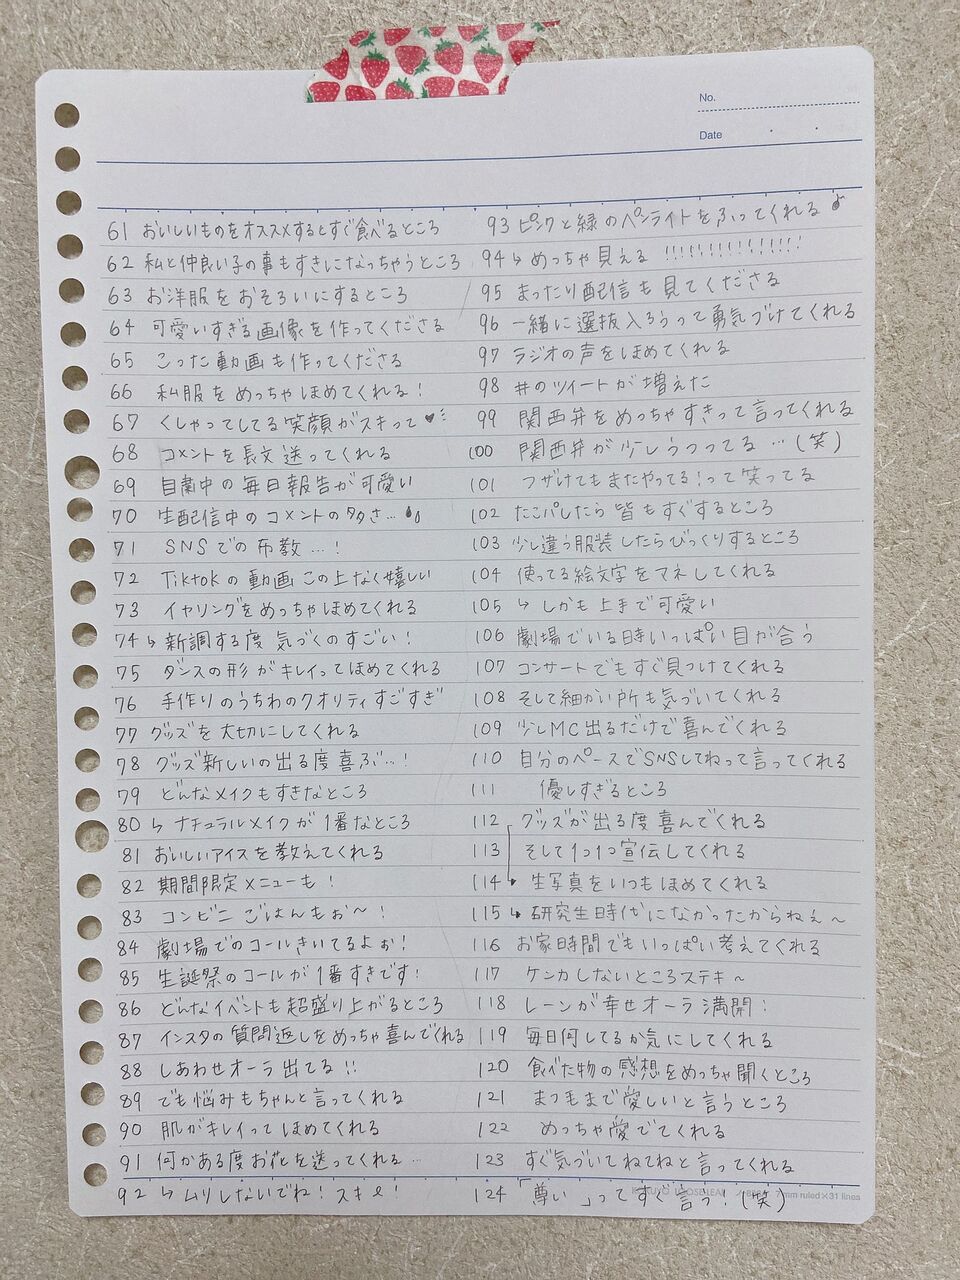 No.
Date
61 おいしいものをオススメするとすぐ食べるところ
62 私と仲良い子の事もすきになっちゃうところ
63 お洋服をおそろいにするところ
64 可愛いすぎる画像を作ってくださる
65 こった動画も作ってくださる
66 私服をめっちゃほめてくれる!
67 くしゃってしてる笑顔がスキって♥
68 コメントを長文送ってくれる
69 自粛中の毎日報告が可愛い
70 生配信中のコメントの多さ…
71 SNSでの布教…!
72 Tiktokの動画この上なく嬉しい
73 イヤリングをめっちゃほめてくれる
74 ↳ 新調する度気づくのすごい!
75 ダンスの形がキレイってほめてくれる
76 手作りのうちわのクオリティすごすぎ
77 グッズを大切にしてくれる
78 グッズ新しいの出る度喜ぶ…!
79 どんなメイクもすきなところ
80 ↳ ナチュラルメイクが1番なところ
81 おいしいアイスを教えてくれる
82 期間限定メニューも!
83 コンビニごはんもぉ〜!
84 劇場でのコールきいてるよぉ!
85 生誕祭のコールが1番すきです!
86 どんなイベントも超盛り上がるところ
87 インスタの質問返しをめっちゃ喜んでくれる
88 しあわせオーラ出てる!!
89 でも悩みもちゃんと言ってくれる
90 肌がキレイってほめてくれる
91 何かある度お花を送ってくれる…
92 ↳ ムリしないでね!スキ!
93 ピンクと緑のペンライトをふってくれる
94 ↳ めっちゃ見える !!!!!!!!!!!!!!
95 まったり配信も見てくださる
96 一緒に選抜入ろうって勇気づけてくれる
97 ラジオの声をほめてくれる
98 #のツイートが増えた
99 関西弁をめっちゃすきって言ってくれる
100 関西弁が少しうつってる…(笑)
101 フザけてもまたやってる!って笑ってる
102 たこパしたら皆もすぐするところ
103 少し違う服装したらびっくりするところ
104 使ってる絵文字をマネしてくれる
105 ↳ しかも上手で可愛い
106 劇場でいる時いっぱい目が合う
107 コンサートでもすぐ見つけてくれる
108 そして細かい所も気づいてくれる
109 少しMC出るだけで喜んでくれる
110 自分のペースでSNSしてねって言ってくれる
111 優しすぎるところ
112 グッズが出る度喜んでくれる
113 そして1つ1つ宣伝してくれる
114 生写真をいつもほめてくれる
115 ↳ 研究生時代になかったからねぇ〜
116 お家時間でもいっぱい考えてくれる
117 ケンカしないところステキ〜
118 レーンが幸せオーラ満開!
119 毎日何してるか気にしてくれる
120 食べた物の感想をめっちゃ聞くところ
121 まつ毛まで愛しいと言うところ
122 めっちゃ愛でてくれる
123 すぐ気づいてねてねと言ってくれる
124 「尊い」ってすぐ言う!(笑)
mm ruled×31 lines